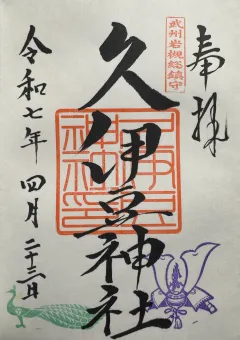 奉拝
武州岩槻総鎮守
久伊豆神社
久伊豆神社印
令和七年四月二十三日